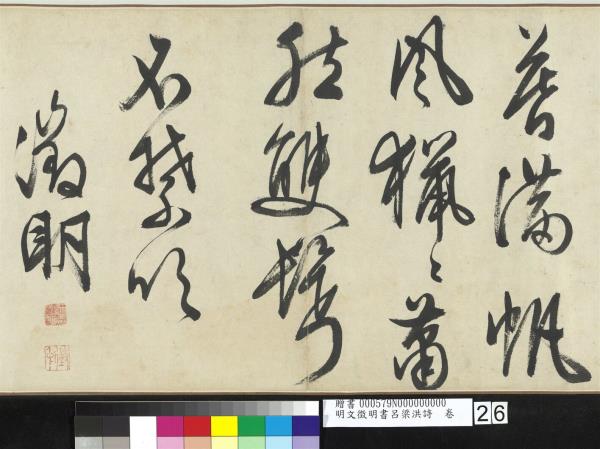 暮滿帆
風獵〻蕭
然雙鬢
不禁吹
徵明
贈書 000579N000000000
明文徵明書呂梁洪詩 卷
26